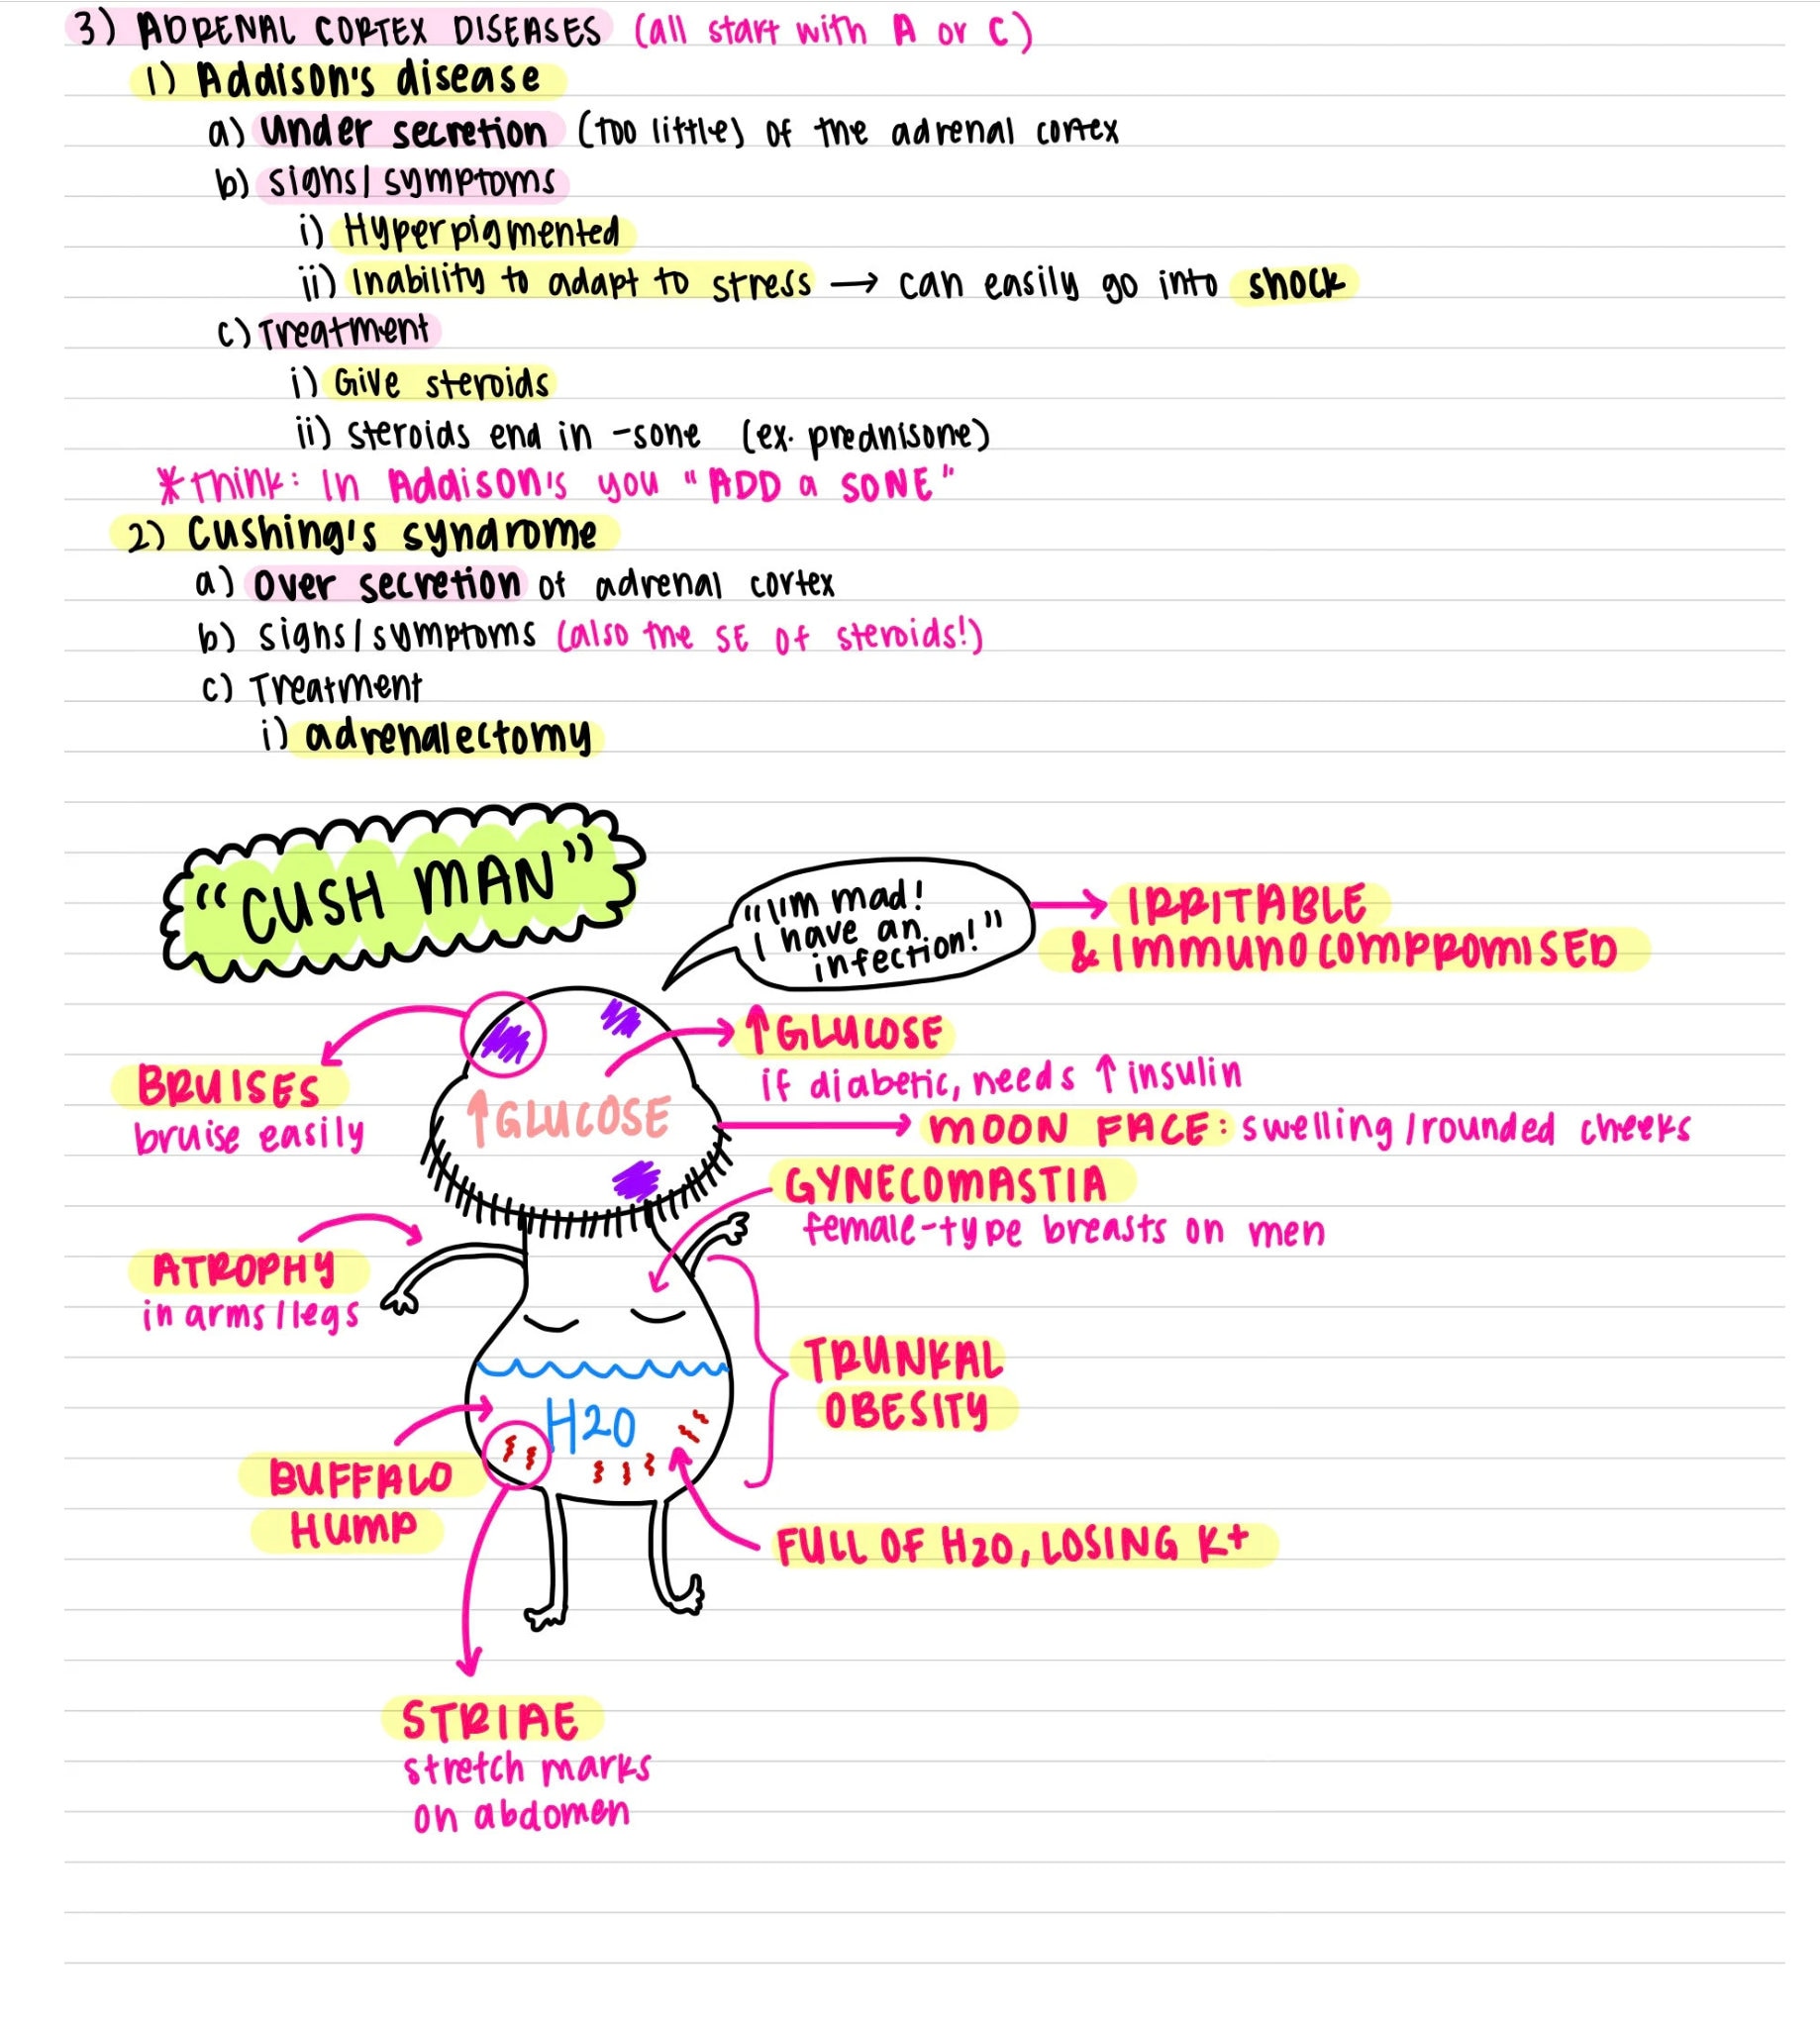 3) ADRENAL CORTEX DISEASES (all start with A or C)
1) Addison's disease
a) under secretion (too little) of the adrenal cortex
b) signs/symptoms
i) Hyperpigmented
ii) Inability to adapt to stress → can easily go into shock
c) Treatment
i) Give steroids
ii) steroids end in -sone (ex. prednisone)
*Think: In Addison's you "ADD a SONE"
2) Cushing's syndrome
a) over secretion of adrenal cortex
b) signs/symptoms (also the SE of steroids!)
c) Treatment
i) adrenalectomy
"CUSH MAN"
"I'm mad!
I have an
infection!"
IRRITABLE
& IMMUNOCOMPROMISED
↑GLUCOSE
if diabetic, needs ↑ insulin
BRUISES
bruise easily
↑GLUCOSE
MOON FACE: swelling/rounded cheeks
GYNECOMASTIA
female-type breasts on men
ATROPHY
in arms/legs
TRUNKAL
OBESITY
H20
BUFFALO
HUMP
FULL OF H20, LOSING K+
STRIAE
stretch marks
on abdomen